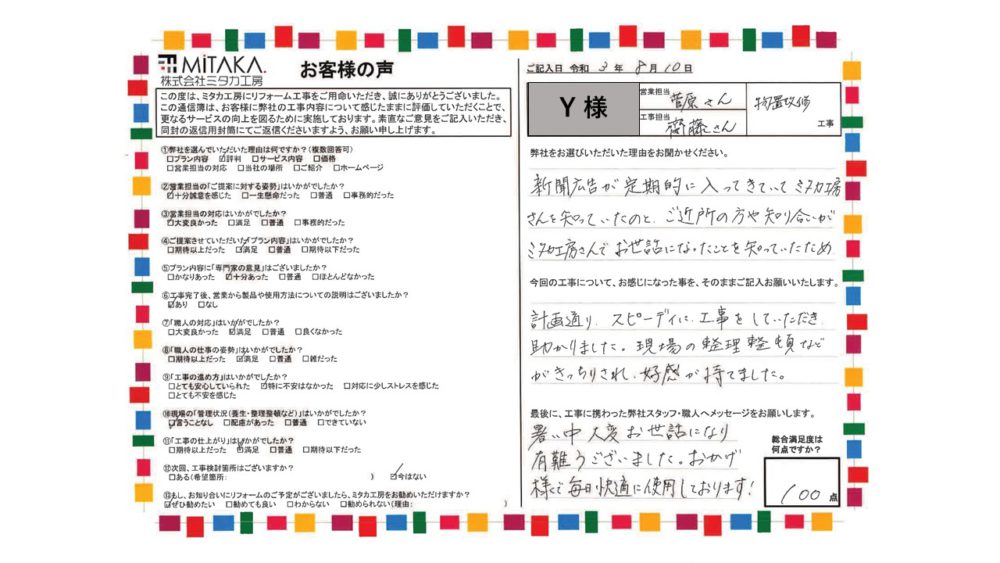 MiTAKA
株式会社ミタカ工房
お客様の声
この度は、ミタカ工房にリフォーム工事をご用命いただき、誠にありがとうございました。
この通信簿は、お客様に弊社の工事内容について感じたままに評価していただくことで、
更なるサービスの向上を図るために実施しております。素直なご意見をご記入いただき、
同封の返信用封筒にてご返信くださいますよう、お願い申し上げます。
①弊社を選んでいただいた理由は何ですか？（複数回答可）
□プラン内容 ☑評判 □サービス内容 □価格
□営業担当の対応 □当社の場所 □ご紹介 □ホームページ
②営業担当の「ご提案に対する姿勢」はいかがでしたか？
☑十分誠意を感じた □一生懸命だった □普通 □事務的だった
③営業担当の対応はいかがでしたか？
☑大変良かった □満足 □普通 □事務的だった
④ご提案させていただいた「プラン内容」はいかがでしたか？
□期待以上だった ☑満足 □普通 □期待以下だった
⑤プラン内容に「専門家の意見」はございましたか？
□かなりあった ☑十分あった □普通 □ほとんどなかった
⑥工事完了後、営業から製品や使用方法についての説明はございましたか？
☑あり □なし
⑦「職人の対応」はいかがでしたか？
□大変良かった ☑満足 □普通 □良くなかった
⑧「職人の仕事の姿勢」はいかがでしたか？
□期待以上だった ☑満足 □普通 □雑だった
⑨「工事の進め方」はいかがでしたか？
□とても安心していられた ☑特に不安はなかった □対応に少しストレスを感じた
□とても不安を感じた
⑩現場の「管理状況（養生・整理整頓など）」はいかがでしたか？
☑言うことなし □配慮があった □普通 □できていない
⑪「工事の仕上がり」はいかがでしたか？
□期待以上だった ☑満足 □普通 □期待以下だった
⑫次回、工事検討箇所はございますか？
□ある（希望箇所: ） ☑今はない
⑬もし、お知り合いにリフォームのご予定がございましたら、ミタカ工房をお勧めいただけますか？
☑ぜひ勧めたい □勧めても良い □わからない □勧められない（理由: ）
ご記入日 令和 3 年 8 月 10 日
Y 様
営業担当 菅原さん
工事担当 齋藤さん
物置改修 工事
弊社をお選びいただいた理由をお聞かせください。
新聞広告が定期的に入ってきていてミタカ工房
さんを知っていたのと、ご近所の方や知り合いが
ミタカ工房さんでお世話になったことを知っていたため
今回の工事について、お感じになった事を、そのままご記入お願いいたします。
計画通り、スピーディに、工事をしていただき、
助かりました。現場の整理整頓など
がきっちりされ、好感が持てました。
最後に、工事に携わった弊社スタッフ・職人へメッセージをお願いします。
暑い中 大変お世話になり
有難うございました。おかげ
様で毎日快適に使用しております！
総合満足度は
何点ですか？
100 点